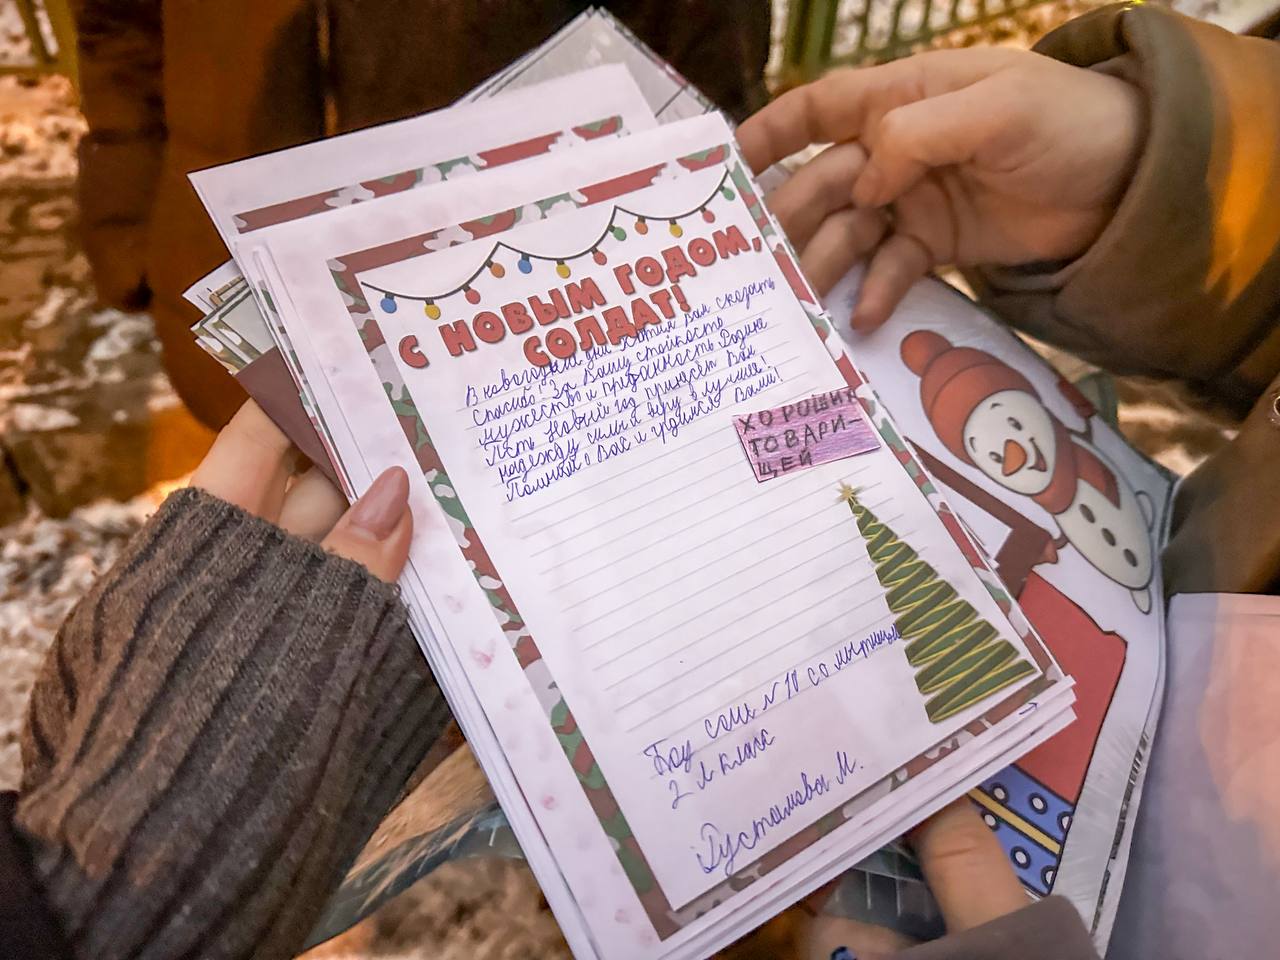 С НОВЫМ ГОДОМ,
СОЛДАТ!
В новогодние дни хотим вам сказать
Спасибо! За Вашу стойкость
мужество и преданность Родине
Пусть Новый год принесёт Вам
надежду силы и веру в лучшее!
Помним о Вас и гордимся Вами!
ХОРОШИХ
ТОВАРИ-
ЩЕЙ
сош № 10
2 л класс
Рустамова М.